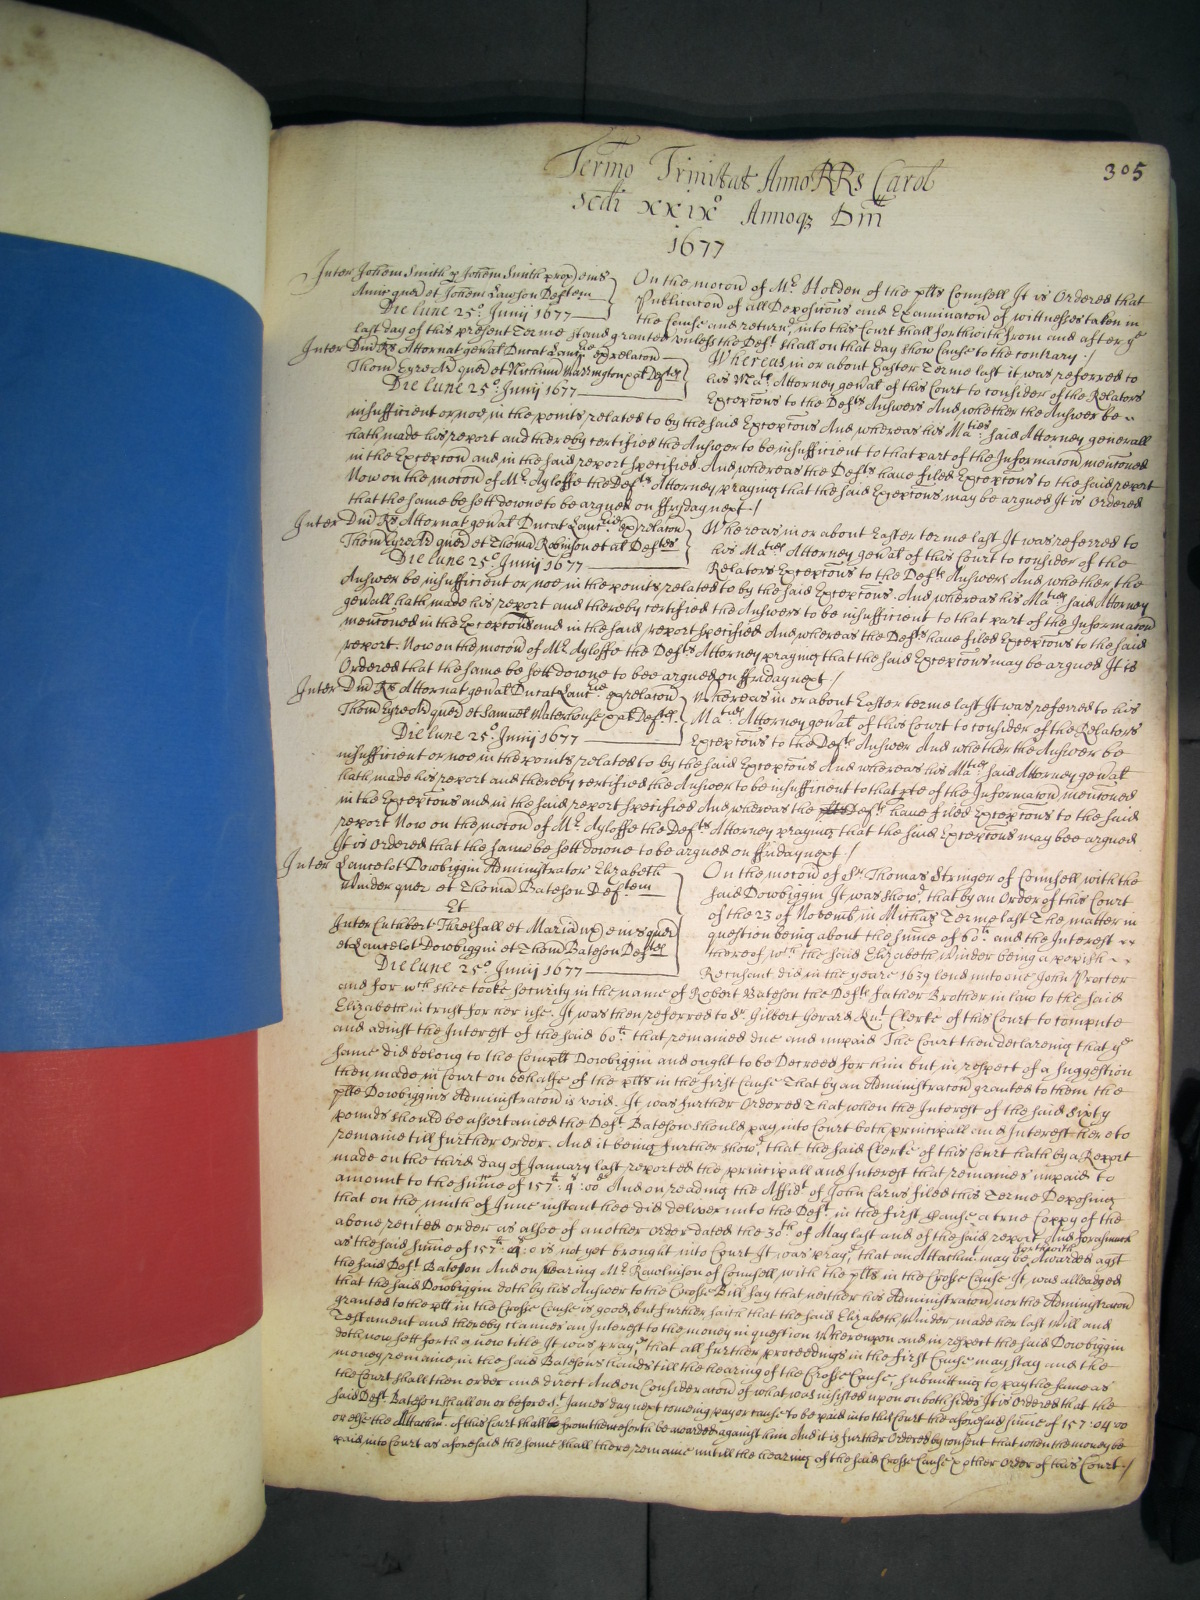 305
Termo Trinitat Anno RRs Carol
scdi xxixo Annoqz Dm
1677
Inter Johem Smith & Johem Smith
quer et Johem Lawson Deftem
Die lune 25o Junij 1677
On the mocon of Mr Holden of the plts Counsell It is Ordered that
Publicacon of all Deposicons and Examinacon of wittnesses taken in
the Cause and returnd into this Court shall forthwith from and after ye
last day of this present Terme stand granted unless the Deft shall on that day show Cause to the contrary ./
Inter Dm Rs Attornat genal Ducat Lancrie ex relacon
Thom Eyre Ar quer et Nichum Warrington et al Deftes
Die lune 25o Junij 1677
Whereas in or about Easter Terme last it was referred to
his Mats Attorney genal of this Court to consider of the Relators
Excepcons to the Defts Answers And whether the Answer be
insufficient or noe in the points related to by the said Excepcons And whereas his Maties said Attorney generall
hath made his report and thereby certified the Answer to be insufficient to that part of the Informacon menconed
in the Excepcon and in the said report specified And whereas the Defts have filed Excepcons to the said report
Now on the mocon of Mr Ayloffe the Defts Attorney praying that the said Excepcons may be argued It is Ordered
that the same be sett downe to be argued on ffriday next ./
Inter Dm Rs Attornat genal Ducat Lancrie ex relacon
Thom Eyre Ar quer et Thoma Robinson et al Deftes
Die lune 25o Junij 1677
Whereas in or about Easter terme last It was referred to
his Maties Attorney genal of this Court to consider of the
Relators Excepcons to the Defts Answers And whether the
Answer be insufficient or noe in the points related to by the said Excepcons. And whereas his Maties said Attorney
genall hath made his report and thereby certified the Answers to be insufficient to that part of the Informacon
menconed in the Excepcons and in the said report specified And whereas the Defts have filed Excepcons to the said
report. Now on the mocon of Mr Ayloffe the Defts Attorney praying that the said Excepcons may be argued It is
Ordered that the same be sett downe to bee argued on ffriday next ./
Inter Dm Rs Attornat genal Ducat Lancrie ex relacon
Thom Eyre Ar quer et Samuel Waterhouse et al Deftes.
Die lune 25o Junij 1677
Whereas in or about Easter terme last It was referred to his
Maties Attorney genal of this Court to consider of the Relators
Excepcons to the Defts Answer And whether the Answer be
insufficient or noe in the points related to by the said Excepcons And whereas his Maties said Attorney genal
hath made his report and thereby certified the Answer to be insufficient to that pte of the Informacon menconed
in the Excepcons and in the said report specified And whereas the Defts have filed Excepcons to the said
report Now on the mocon of Mr Ayloffe the Defts Attorney praying that the said Excepcons may bee argued
It is Ordered that the same be sett downe to be argued on ffriday next ./
Inter Lancelot Dowbiggin Administrator Elizabeth
Winder quer et Thoma Bateson Deftem
Et
Inter Cutbert Threlfall et Maria ux eius quer
et Lancelot Dowbiggin et Thom Bateson Deftes
Die lune 25o Junij 1677
On the mocon of Sr Thomas Stringer of Counsell with the
said Dowbiggin It was showd that by an Order of this Court
of the 23 of Novemb in Michas Terme last The matter in
question being about the summe of 60li and the Interest
thereof wch the said Elizabeth Winder being a popish
Recusant did in the yeare 1639 lend unto one John Procter
and for wch shee tooke security in the name of Robert Bateson the Defts father Brother in law to the said
Elizabeth in trust for her use. It was then referred to Sr Gilbert Gerard Knt Clerke of this Court to compute
and adiust the Interest of the said 60li that remained due and unpaid The Court then declareing that ye
same did belong to the Complt Dowbiggin and ought to be Decreed for him but in respect of a suggestion
then made in Court on behalfe of the plts in the first Cause That by an Administracon granted to them the
plte Dowbiggins Administracon is void. It was further Ordered That when the Interest of the said sixty
pounds should be assertained the Deft Bateson should pay into Court both principall and Interest there to
remaine till further Order. And it being further showd, that the said Clerke of this Court hath by a Report
made on the third day of January last reported the principall and Interest that remaines unpaid to
amount to the summe of 157li: 4s: 00d And on reading the Affidt of John Carus filed this Terme Deposing
that on the ninth of June instant hee did deliver unto the Deft in the first Cause a true Coppy of the
above recited order as alsoe of another order dated the 30th of May last and of the said report And forasmuch
as the said summe of 157li: 4s: 0 is not yet brought into Court It was prayd that an Attachmt may be forthwith Awarded agst
the said Deft Bateson And on hearing Mr Rawlinson of Counsell with the plts in the Crosse Cause It was alleadged
that the said Dowbiggin doth by his Answer to the Crosse Bill say that neither his Administracon nor the Administracon
granted to the plt in the Crosse Cause is good, but further saith that the said Elizabeth Winder made her last Will and
Testament and thereby claimes an Interest to the money in question Whereupon and in respect the said Dowbiggin
doth now sett forth a new title It was prayd, that all further proceedings in the first Cause may stay and the
money remaine in the said Batesons hands till the hearing of the Crosse Cause, submitting to pay the same as
the Court shall then order and direct And on Consideracon of what was insisted upon on both sides It is Ordered that the
said Deft Bateson shall on or before St James day next comeing pay or cause to be paid into this Court the aforesaid summe of 157 : 04 00
or else the Attachmt of this Court shall from thenceforth be awarded against him And it is further Ordered by consent that when the money be
paid into Court as aforesaid the same shall there remaine untill the hearing of the said Crosse Cause or other Order of this Court ./